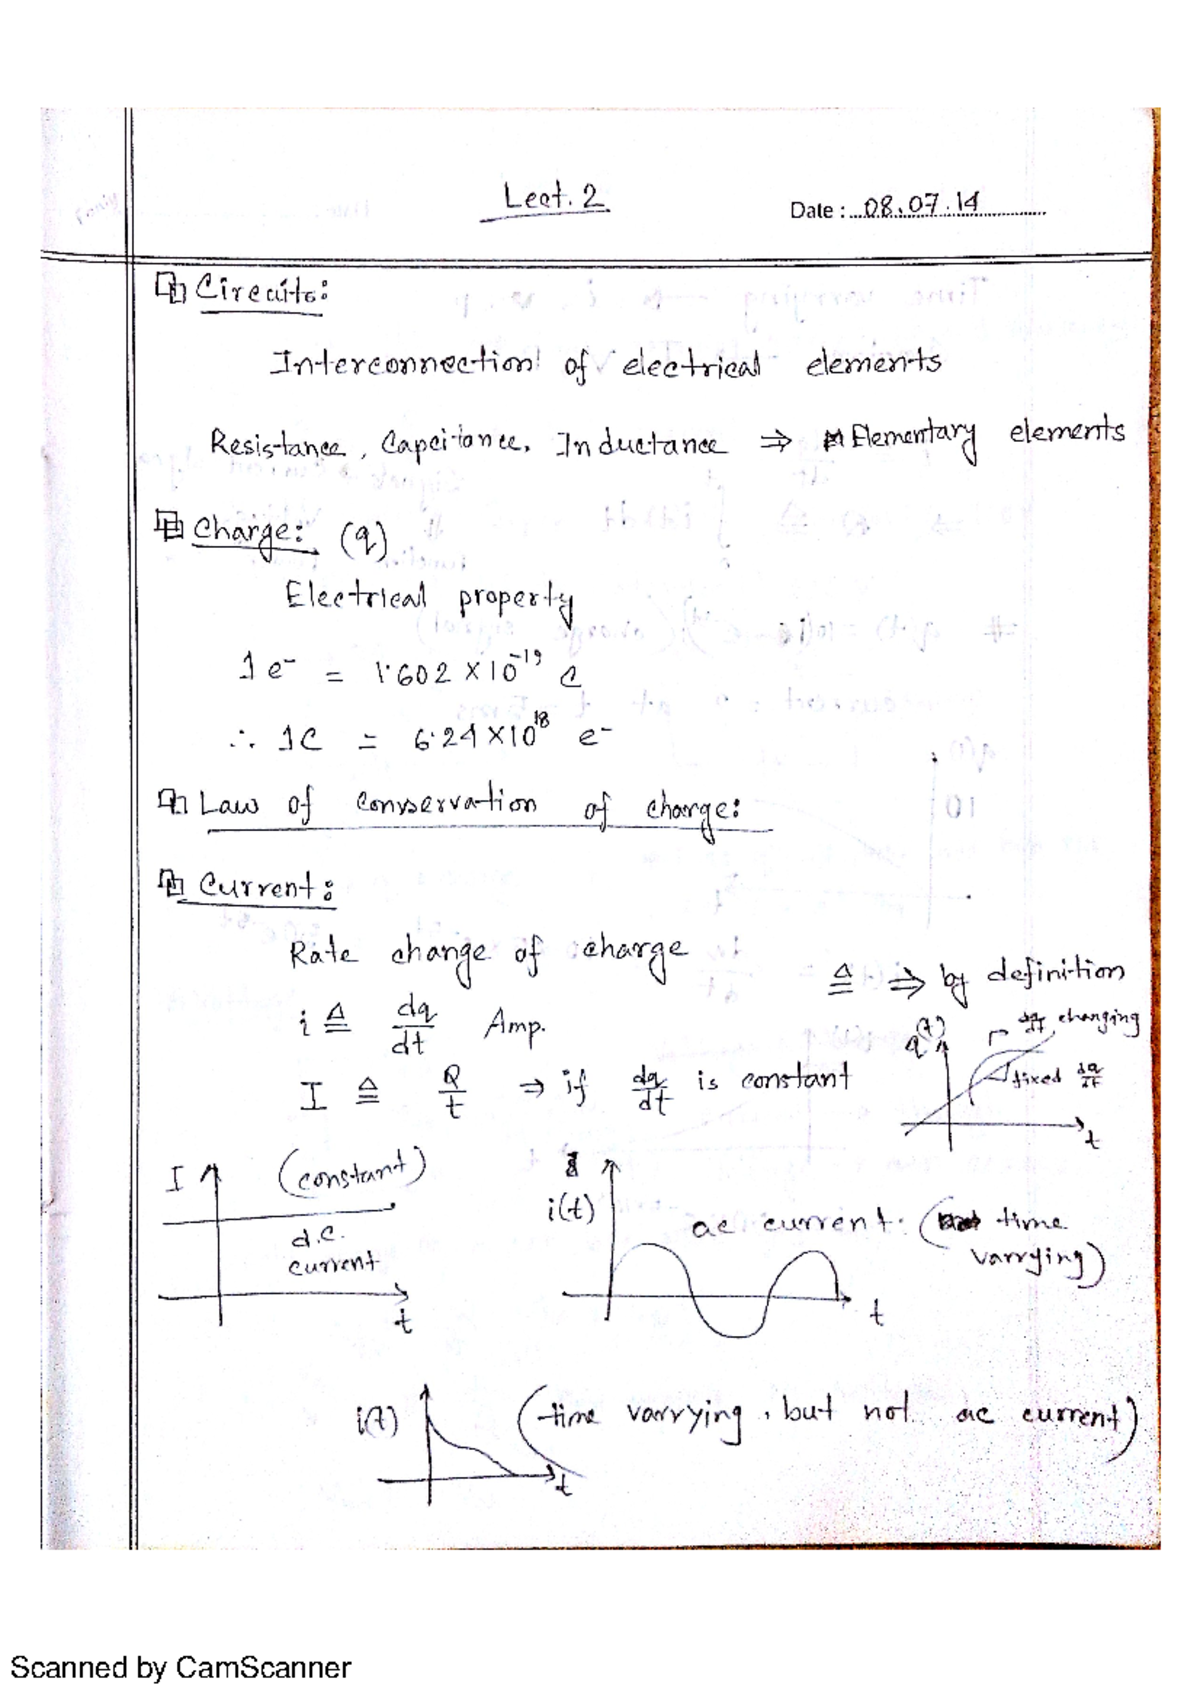 Lect. 2
Date : 08.07.14
Circuits:
Interconnection of electrical elements
Resistance, Capcitance, Inductance ⇒ Elementary elements
Charge: (q)
Electrical property
1 e⁻ = 1.602 × 10⁻¹⁹ C
∴ 1C = 6.24 × 10¹⁸ e⁻
Law of conservation of charge:
Current:
Rate change of charge
≜ ⇒ by definition
i ≜ dq/dt Amp.
q(t)
dq/dt changing
fixed dq/dt
t
I ≜ Q/t ⇒ if dq/dt is constant
I
(constant)
d.c.
current
t
i(t)
ac current. (time
varrying)
t
i(t)
(time varrying, but not ac current)
t
Scanned by CamScanner